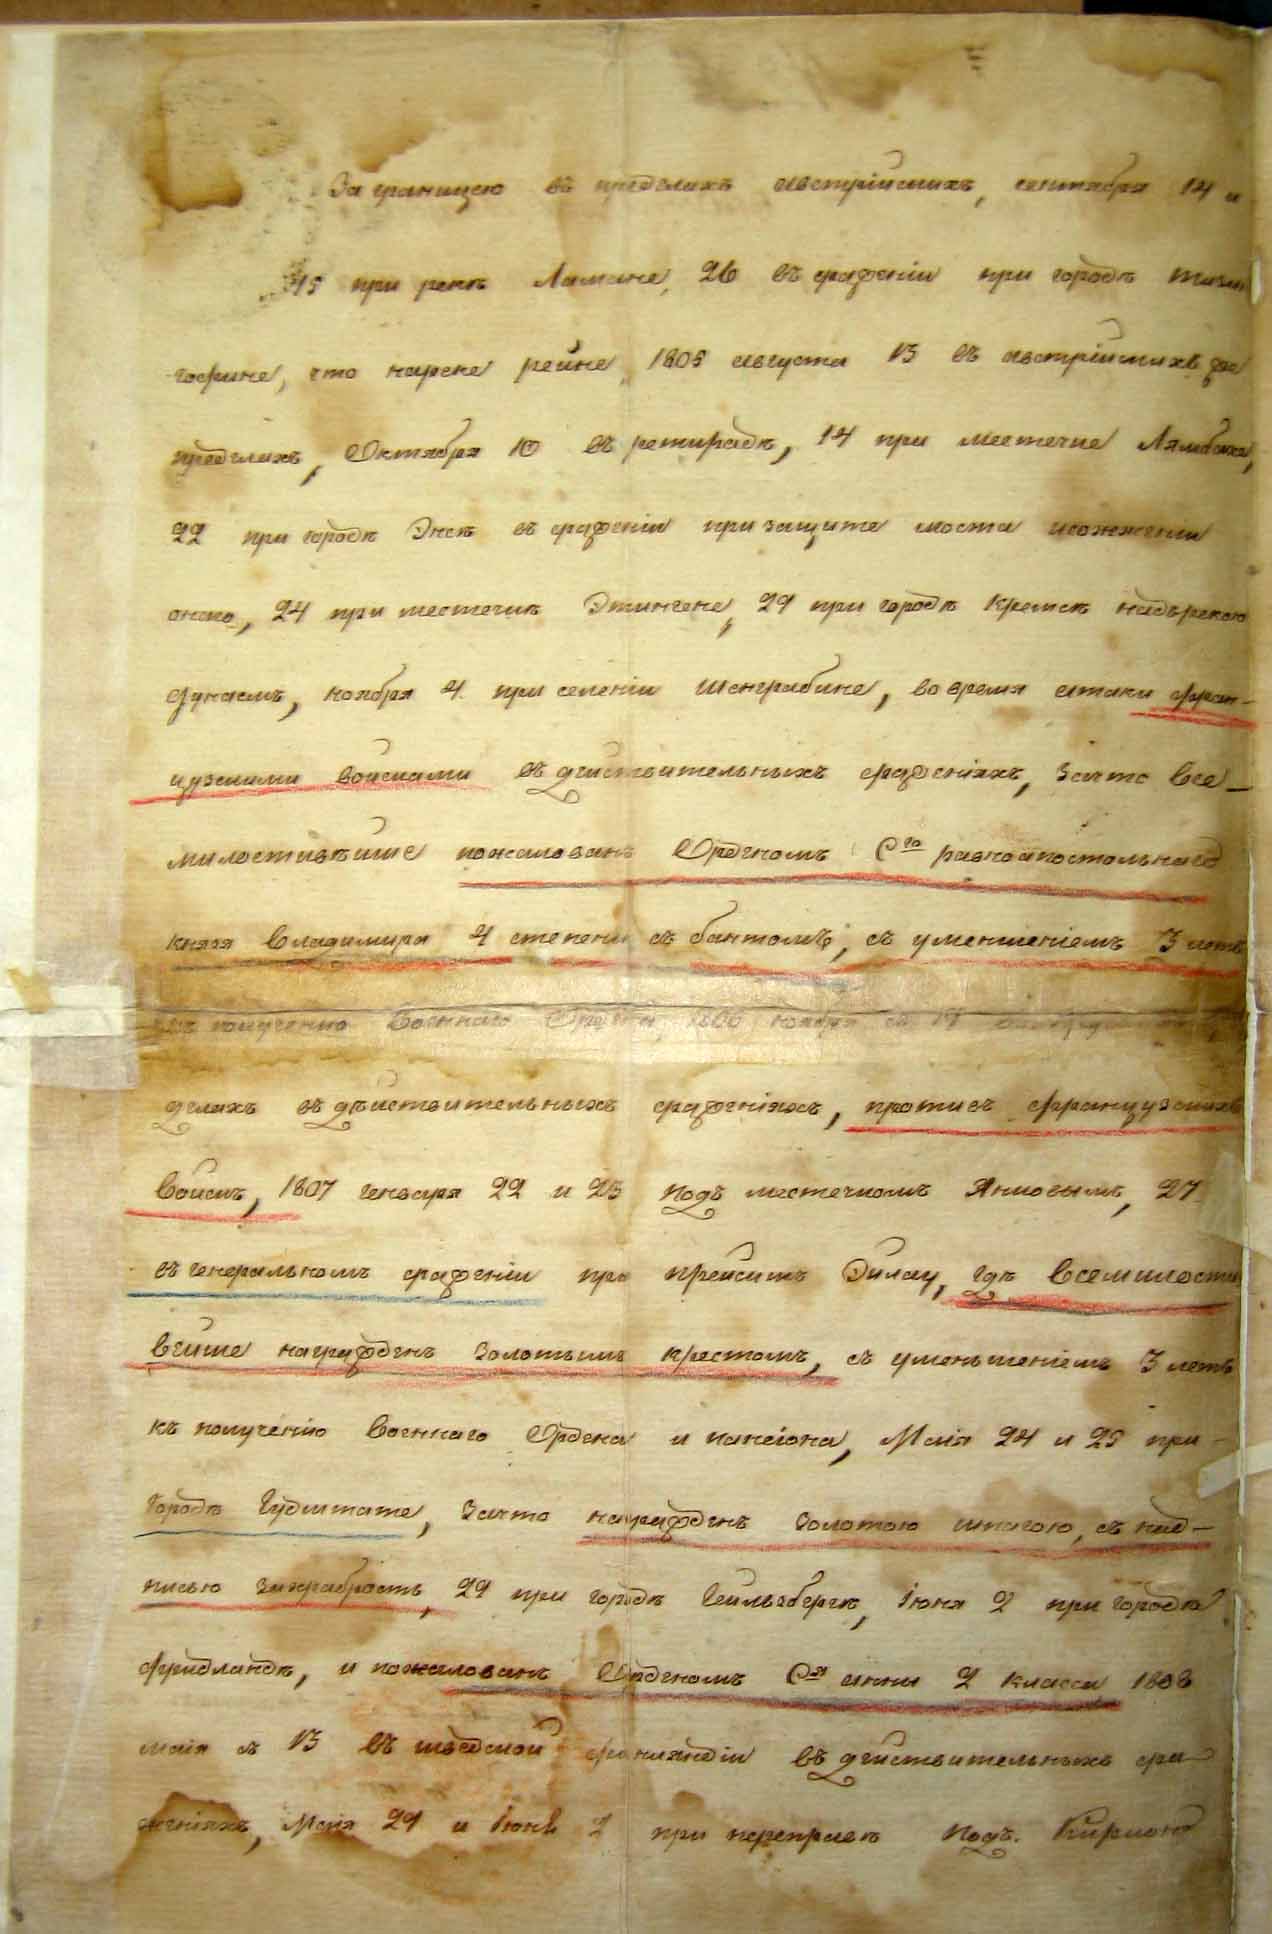 За границею въ пределахъ австрійскихъ, сентября 14 и
15 при реке 26 въ сраженіи при городе
что нареке рейне, 1805 августа 13 въ австрійскихъ же
пределахъ, Октября 10 въ ретирадѣ, 14 при местечке Лямбахе,
22 при городѣ Энсѣ въ сраженіи при защите моста исожженіи
онаго, 24 при местечкѣ Этингене, 29 при городѣ Кремсѣ надърекою
дунаемъ, ноября 4 при селеніи шенграбине, во время атаки фран-
цузскими войсками въ действительныхъ сраженіяхъ, зачто все-
милостивѣйше пожалованъ Орденомъ Сго равноапостольнаго
князя Владимира 4 степени съ бантомъ, съ уменшеніемъ 3 летъ
къ полученію Военнаго Ордена, 1806 ноября съ 14
делахъ въ дѣйствительныхъ сраженіяхъ, противъ французскихъ
войскъ, 1807 генваря 22 и 23 подъ местечкомъ Янковымъ, 27
въ генеральномъ сраженіи при прейсишъ Эйлау, где всемилости
вейше награжденъ золотымъ крестомъ, съ уменьшеніемъ 3 летъ
къ полученію военнаго Ордена и пансіона, Маія 24 и 25 при
городѣ Гудштате, зачто награжденъ золотою шпагою, съ над-
писью захрабрость, 29 при городѣ Гейльзбергѣ, Іюня 2 при городѣ
фридландѣ, и пожалованъ Орденомъ Сяя анны 2 класса 1808
маія съ 13 въ шведской финляндіи въ действительныхъ сра-
женіяхъ, Маія 29 и Іюня 2 при переправѣ подъ